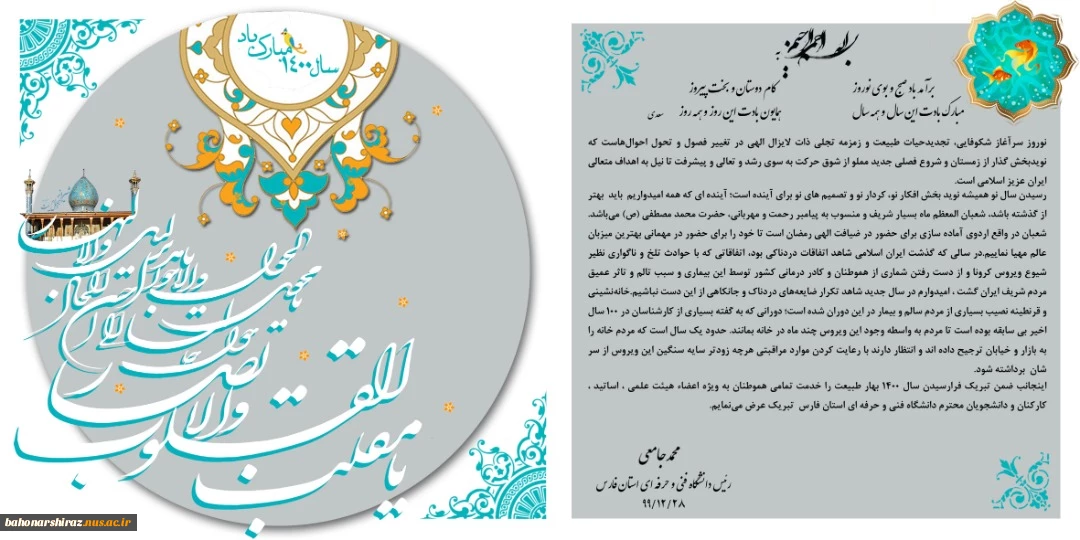 سال ۱۴۰۰ مبارک باد
یا مقلب القلوب
والابصار
bahonarshiraz.nus.ac.ir
به
برآمد باد صبح و بوی نوروز
بکام دوستان و بخت پیروز
مبارک بادت این سال و همه سال
همایون بادت این روز و همه روز
سعدی
نوروز سرآغاز شکوفایی، تجدیدحیات طبیعت و زمزمه تجلی ذات لایزال الهی در تغییر فصول و تحول احوال‌هاست که
نویدبخش گذار از زمستان و شروع فصلی جدید مملو از شوق حرکت به سوی رشد و تعالی و پیشرفت تا نیل به اهداف متعالی
ایران عزیز اسلامی است.
رسیدن سال نو همیشه نوید بخش افکار نو، کردار نو و تصمیم های نو برای آینده است؛ آینده ای که همه امیدواریم باید بهتر
از گذشته باشد، شعبان المعظم ماه بسیار شریف و منسوب به پیامبر رحمت و مهربانی، حضرت محمد مصطفی (ص) می‌باشد.
شعبان در واقع اردوی آماده سازی برای حضور در ضیافت الهی رمضان است تا خود را برای حضور در مهمانی بهترین میزبان
عالم مهیا نماییم.در سالی که گذشت ایران اسلامی شاهد اتفاقات دردناکی بود، اتفاقاتی که با حوادث تلخ و ناگواری نظیر
شیوع ویروس کرونا و از دست رفتن شماری از هموطنان و کادر درمانی کشور توسط این بیماری و سبب تالم و تاثر عمیق
مردم شریف ایران گشت ، امیدوارم در سال جدید شاهد تکرار ضایعه‌های دردناک و جانکاهی از این دست نباشیم.خانه‌نشینی
و قرنطینه نصیب بسیاری از مردم سالم و بیمار در این دوران شده است؛ دورانی که به گفته بسیاری از کارشناسان در ۱۰۰ سال
اخیر بی سابقه بوده است تا مردم به واسطه وجود این ویروس چند ماه در خانه بمانند. حدود یک سال است که مردم خانه را
به بازار و خیابان ترجیح داده اند و انتظار دارند با رعایت کردن موارد مراقبتی هرچه زودتر سایه سنگین این ویروس از سر
شان برداشته شود.
اینجانب ضمن تبریک فرارسیدن سال ۱۴۰۰ بهار طبیعت را خدمت تمامی هموطنان به ویژه اعضاء هیئت علمی ، اساتید ،
کارکنان و دانشجویان محترم دانشگاه فنی و حرفه ای استان فارس تبریک عرض می‌نمایم.
محمد جامعی
رئیس دانشگاه فنی و حرفه ای استان فارس
۹۹/۱۲/۲۸